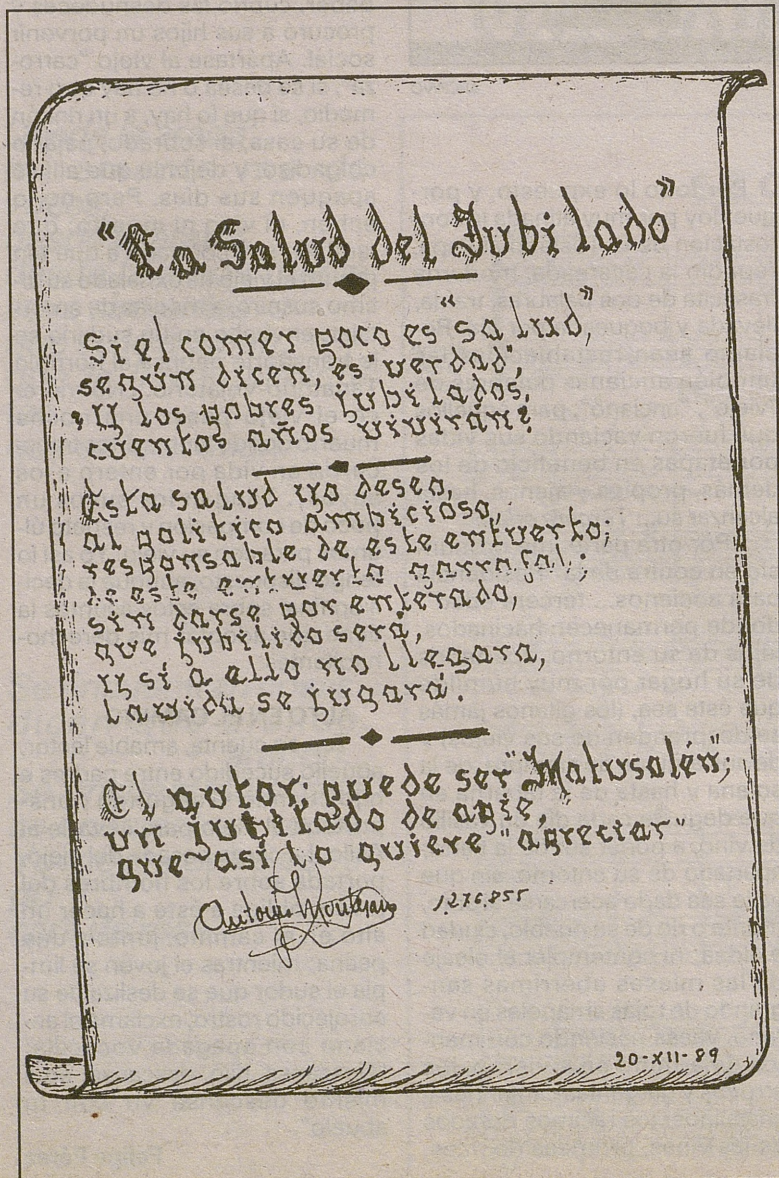 "La Salud del Jubilado"
Si el comer poco es "salud,"
según dicen, es "verdad",
¿Y los pobres jubilados,
cuentos años vivirán?
Esta salud yo deseo,
al politico ambicioso,
responsable de este entuerto;
de este entuerto garrafal;
sin darse por enterado,
que jubilido será,
y si a ello no llegara,
la vida se jugará.
El autor; puede ser "Matusalén",
un jubilado de apie,
que así lo quiere "apreciar"
Antonio Montesano
1.276.855
20-XII-89